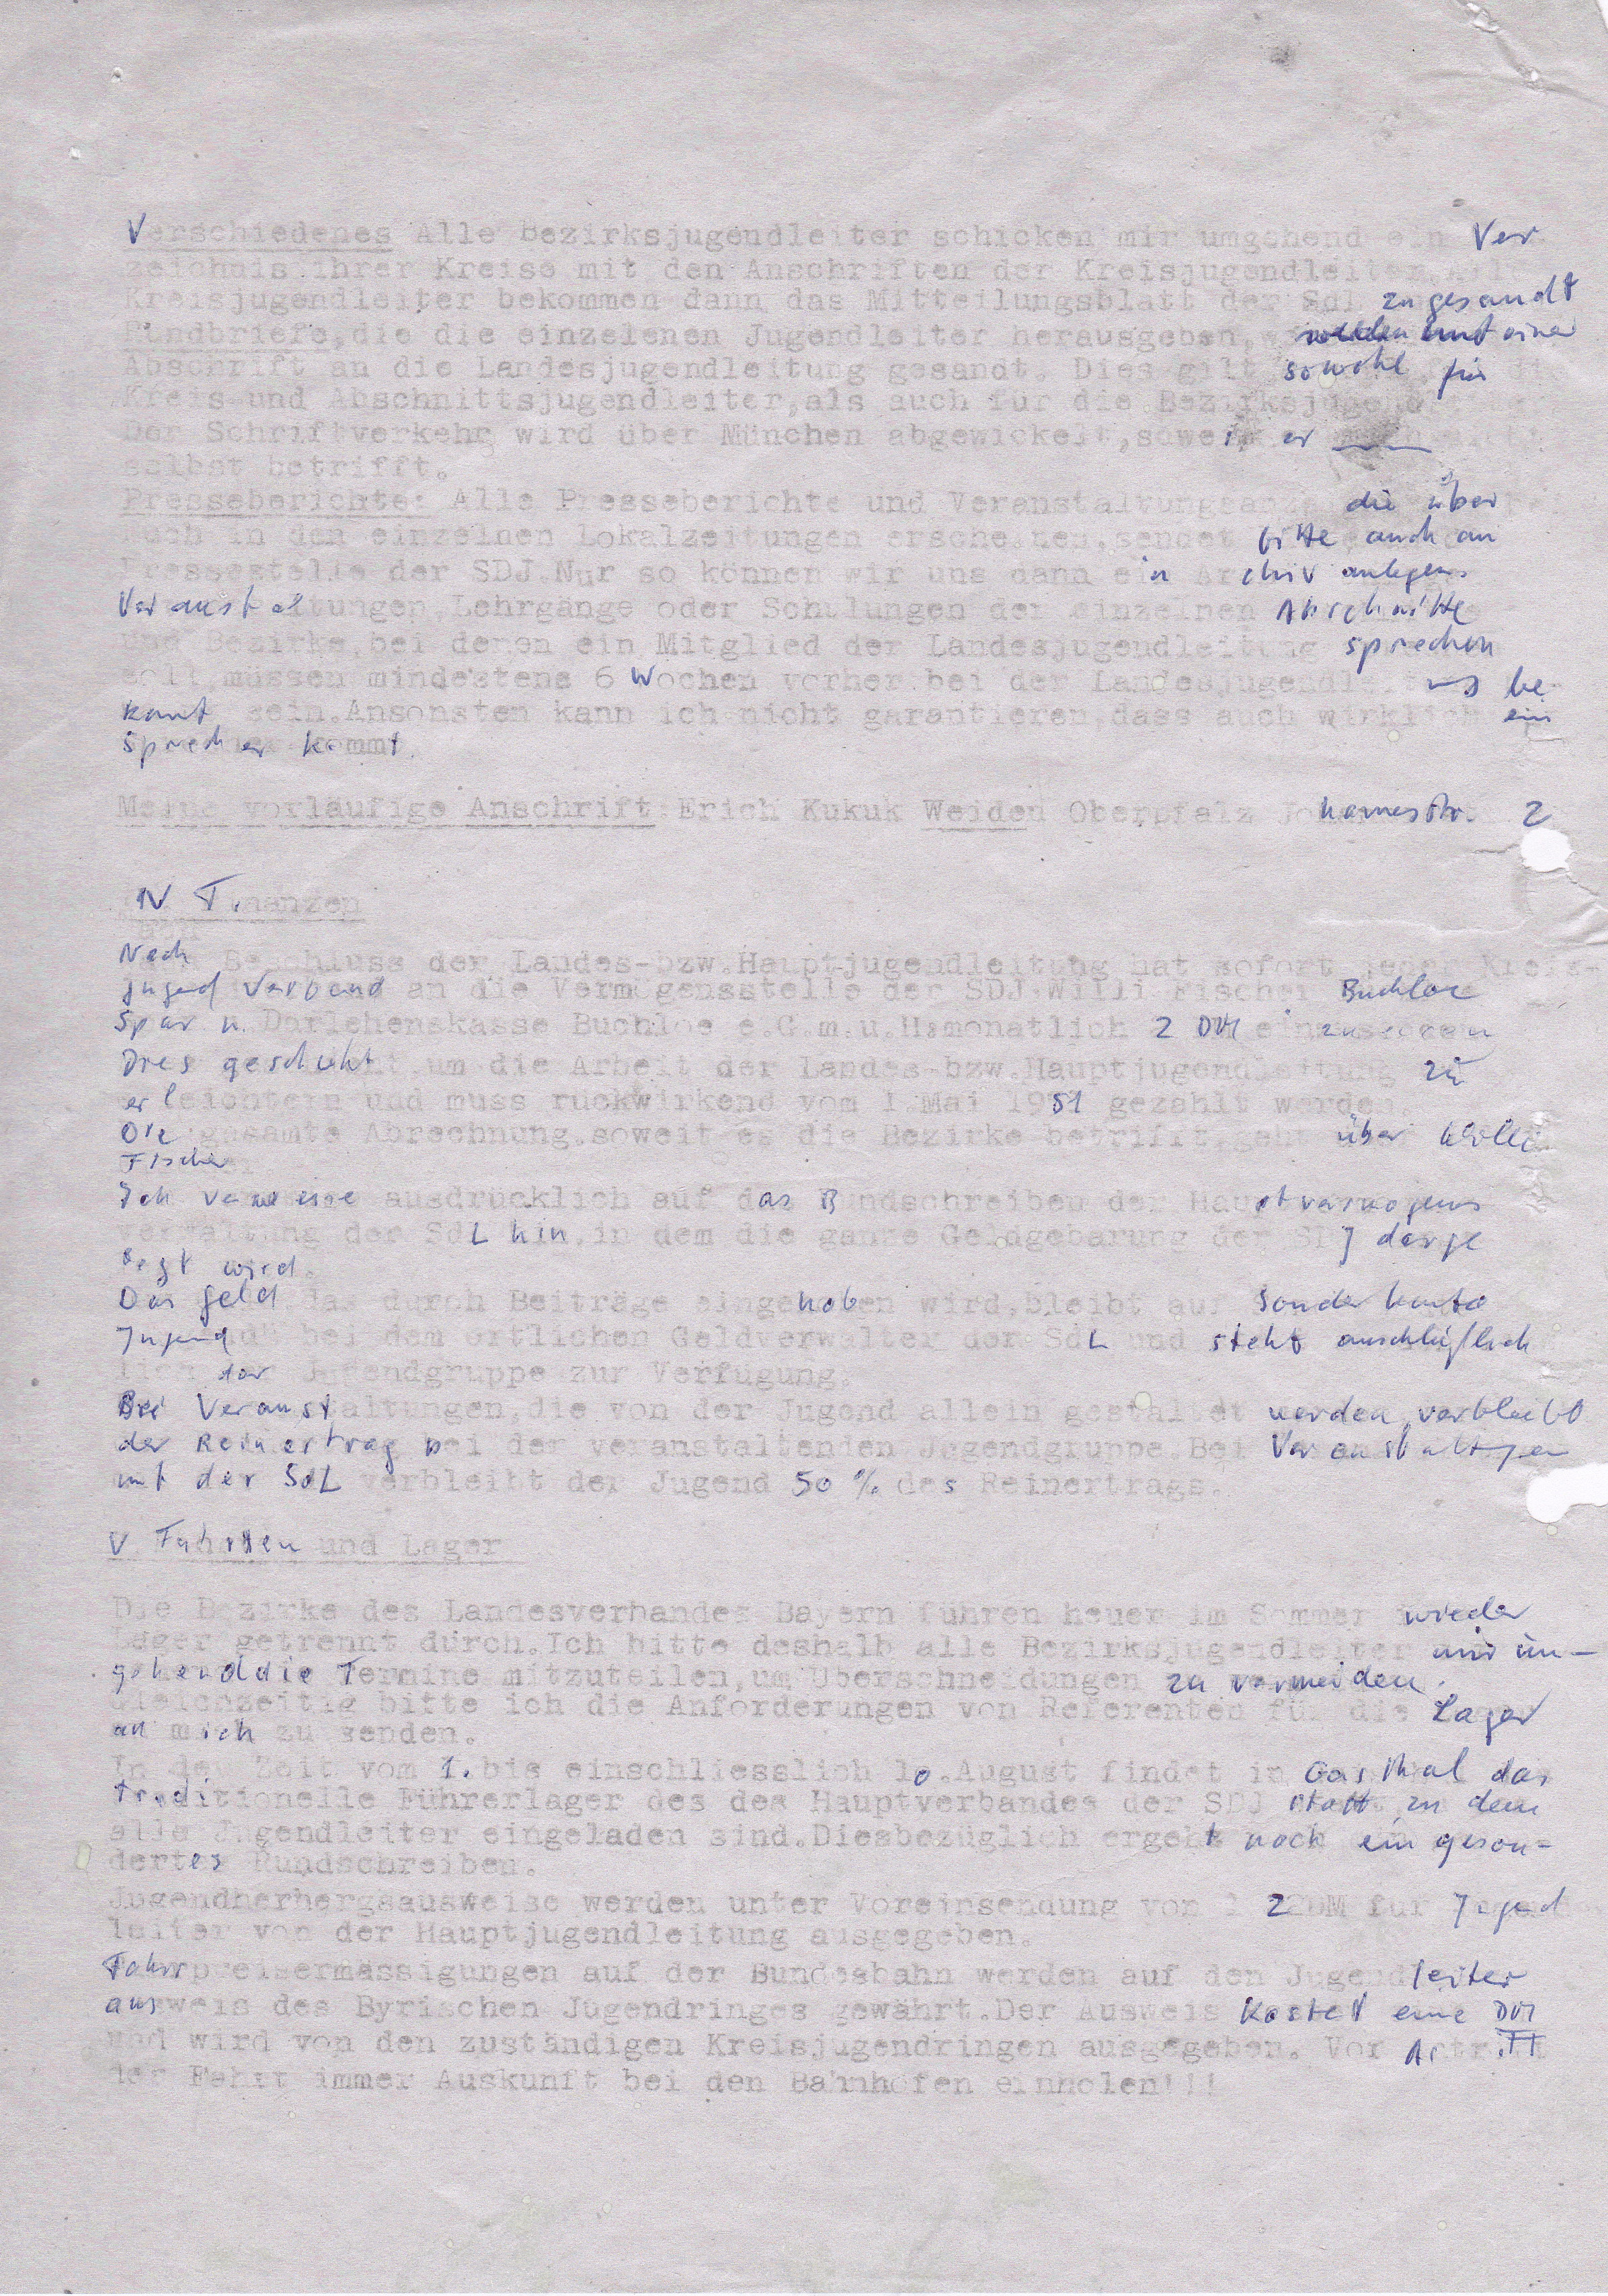 Verschiedenes Alle Bezirksjugendleiter schicken mir umgehend ein Ver
zeichnis ihrer Kreise mit den Anschriften der Kreisjugendleiter.
Kreisjugendleiter bekommen dann das Mitteilungsblatt der SdL zugesandt
Rundbriefe,die die einzelenen Jugendleiter herausgeben, werden mit einer
Abschrift an die Landesjugendleitung gesandt. Dies gilt sowohl für
Kreis-und Abschnittsjugendleiter,als auch für die
Der Schriftverkehr wird über München abgewickelt,soweit er
selbst betrifft.
Presseberichte: Alle Presseberichte und die über
auch in den einzelnen Lokalzeitungen erscheinen,sendet bitte auch an
Pressestelle der SDJ.Nur so können wir uns dann ein Archiv anlegen.
Veranstaltungen,Lehrgänge oder Schulungen der einzelnen Abschnitte
und Bezirke,bei denen ein Mitglied der Landesjugendleitung sprechen
soll,müssen mindestens 6 Wochen vorher bei der Landesjugendleitung be-
kannt sein.Ansonsten kann ich nicht garantieren,dass auch wirklich ein
Sprecher kommt.
Meine vorläufige Anschrift Erich Kukuk Weiden Oberpfalz Johannesstr. 2
IV Finanzen
Nach Beschluss der Landes-bzw.Hauptjugendleitung hat sofort jeder Kreis-
jugend Verband an die Vermögensstelle der SDJ Willi Fischer Buchloe
Spar u. Darlehenskasse Buchloe e.G.m.u.H.monatlich 2 DM einzusenden
Dies geschieht um die Arbeit der Landes-bzw.Hauptjugendleitung zu
erleichtern und muss rückwirkend vom 1.Mai 1951 gezahlt werden.
Die gesamte Abrechnung,soweit es die Bezirke betrifft,geht über Willi
Fischer
Ich verweise ausdrücklich auf das Rundschreiben der Hauptvermögens
verwaltung der SdL hin,in dem die ganze Geldgebarung der SDJ darge
legt wird.
Das Geld das durch Beiträge eingehoben wird,bleibt auf Sonderkonto
Jugend bei dem örtlichen Geldverwalter der SdL und steht ausschließlich
lich der Jugendgruppe zur Verfügung.
Bei Veranstaltungen,die von der Jugend allein gestaltet werden,verbleibt
der Reinertrag bei der veranstaltenden Jugendgruppe.Bei Veranstaltungen
mit der SdL verbleibt der Jugend 50 % des Reinertrags.
V Fahrten und Lager
Die Bezirke des Landesverbandes Bayern führen heuer im Sommer wieder
Lager getrennt durch.Ich bitte deshalb alle Bezirksjugendleiter mir um-
gehend die Termine mitzuteilen,um Überschneidungen zu vermeiden.
Gleichzeitig bitte ich die Anforderungen von Referenten für die Lager
an mich zu senden.
In der Zeit vom 1. bis einschliesslich 10.August findet in Gasthal das
traditionelle Führerlager des des Hauptverbandes der SDJ statt zu dem
alle Jugendleiter eingeladen sind.Diesbezüglich ergeht noch ein geson-
dertes Rundschreiben.
Jugendherbergsausweise werden unter Voreinsendung von DM für Jugend
leiter von der Hauptjugendleitung ausgegeben.
Fahrpreisermässigungen auf der Bundesbahn werden auf den Jugendleiter
ausweis des Byrischen Jugendringes gewährt.Der Ausweis kostet eine DM
und wird von den zuständigen Kreisjugendringen ausgegeben. Vor Antritt
der Fahrt immer Auskunft bei den Bahnhöfen einholen!!!